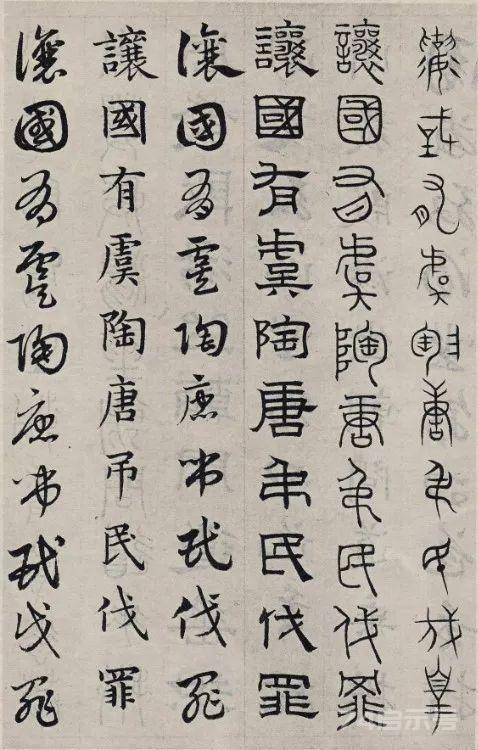 讓國有虞陶唐弔民伐辠
讓國有虞陶唐弔民伐罪
讓國有虞陶唐弔民伐罪
讓國有虞陶唐弔民伐罪
讓國有虞陶唐吊民伐罪
讓國有虞陶唐弔民伐罪